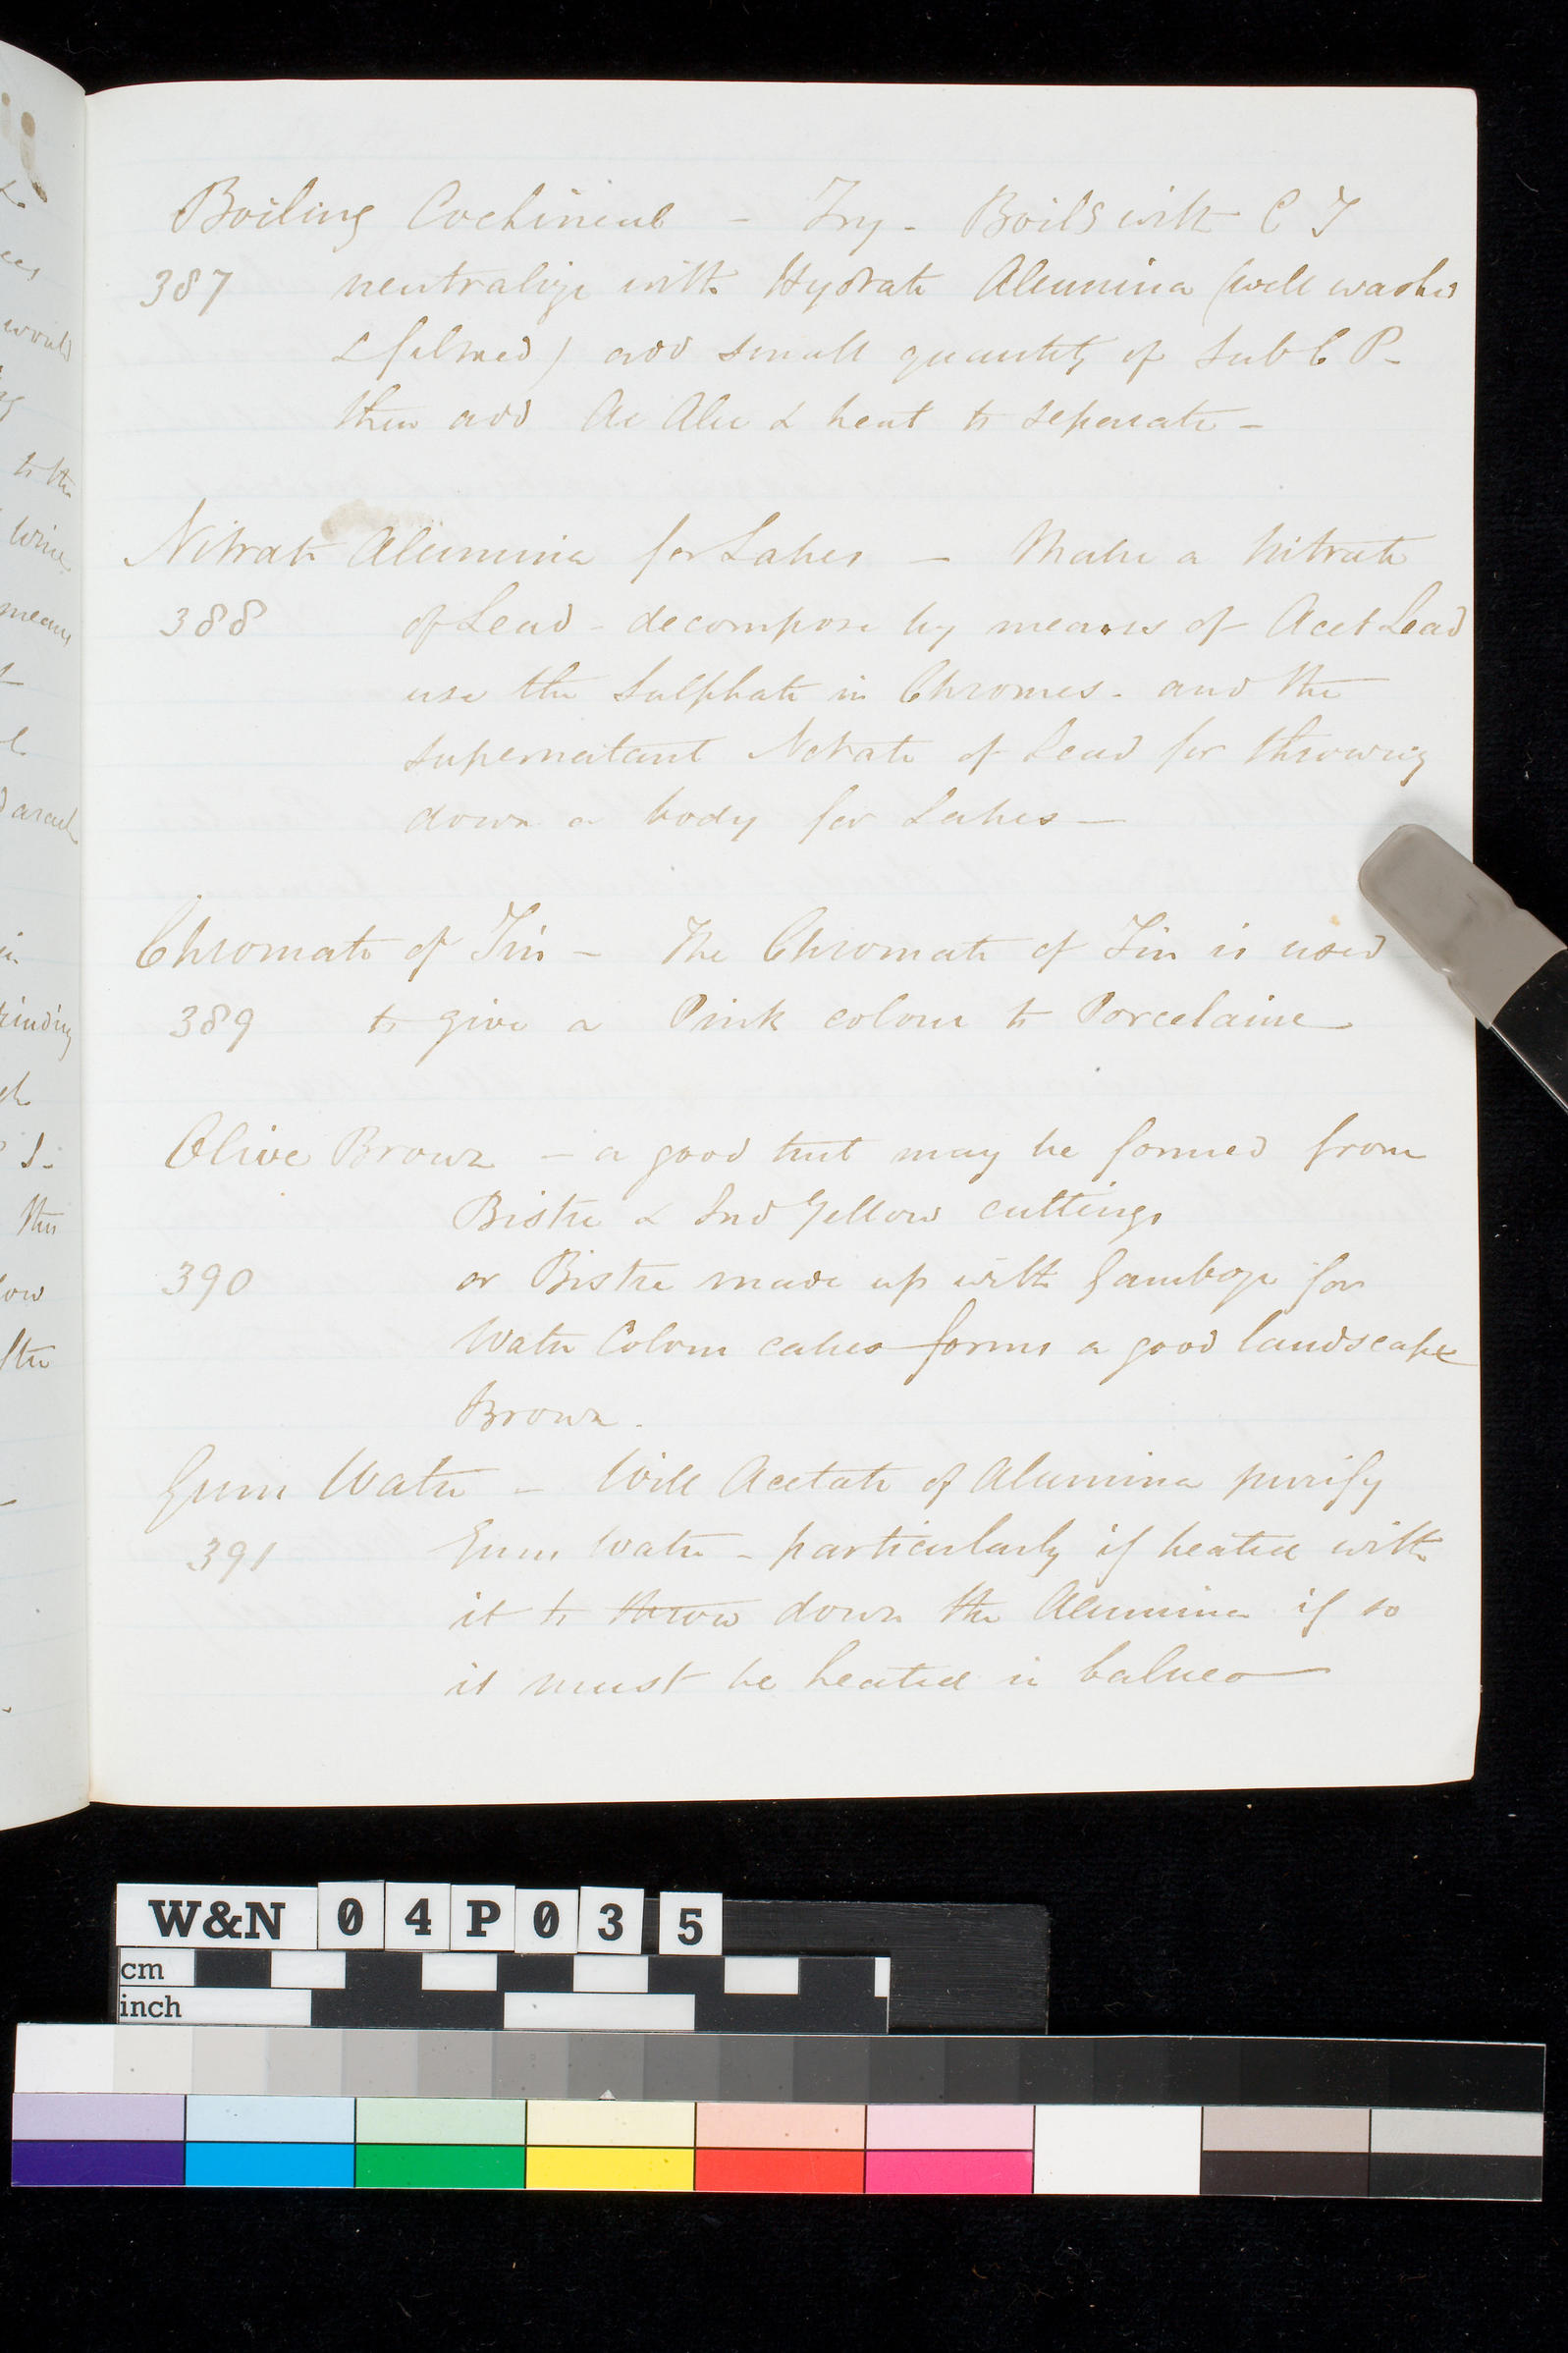 Boiling Cochineal - Try - Boil S with C T
387 neutralize with Hydrate Alumina (well washed
& filtered) add small quantity of Sub C P -
then add Ac Alu & heat to separate -
Nitrate Alumina for Lakes - Make a Nitrate
388 of Lead - decompose by means of Acet Lead
use the Sulphate in Chromes - and the
supernatant Nitrate of Lead for throwing
down a body for Lakes -
Chromate of Tin - The Chromate of Tin is used
389 to give a Pink colour to Porcelaine
Olive Brown - a good tint may be formed from
Bistre & Ind Yellow cuttings
390 or Bistre made up with Gamboge for
Water Colour cakes forms a good landscape
Brown.
Gum Water - Will Acetate of Alumina purify
391 Gum Water - particularly if heated with
it to throw down the Alumina if so
it must be heated in balneo
would
to the
means
W&N 04P035
cm
inch